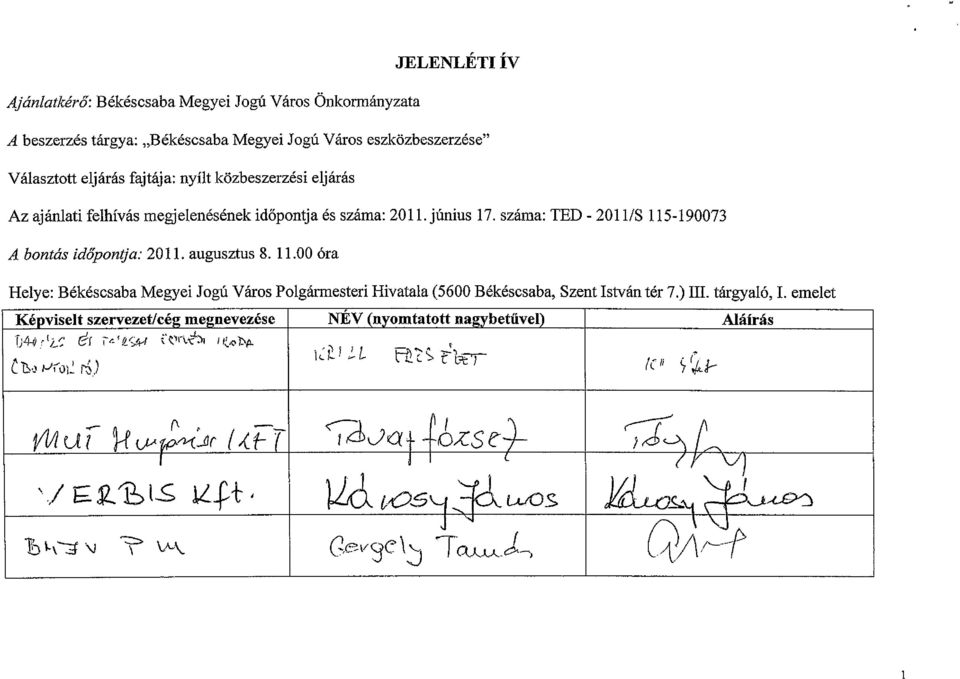 JELENLÉTI ÍV
Ajánlatkérő: Békéscsaba Megyei Jogú Város Önkormányzata
A beszerzés tárgya: „Békéscsaba Megyei Jogú Város eszközbeszerzése”
Választott eljárás fajtája: nyílt közbeszerzési eljárás
Az ajánlati felhívás megjelenésének időpontja és száma: 2011. június 17. száma: TED - 2011/S 115-190073
A bontás időpontja: 2011. augusztus 8. 11.00 óra
Helye: Békéscsaba Megyei Jogú Város Polgármesteri Hivatala (5600 Békéscsaba, Szent István tér 7.) III. tárgyaló, I. emelet
Képviselt szervezet/cég megnevezése NÉV (nyomtatott nagybetűvel) Aláírás
ÉS TÁRSAI IRODA
ERZSÉBET
MUT Hungária KFT József
VERBIS Kft. János János
BMJV PM Gergely Tamás
1